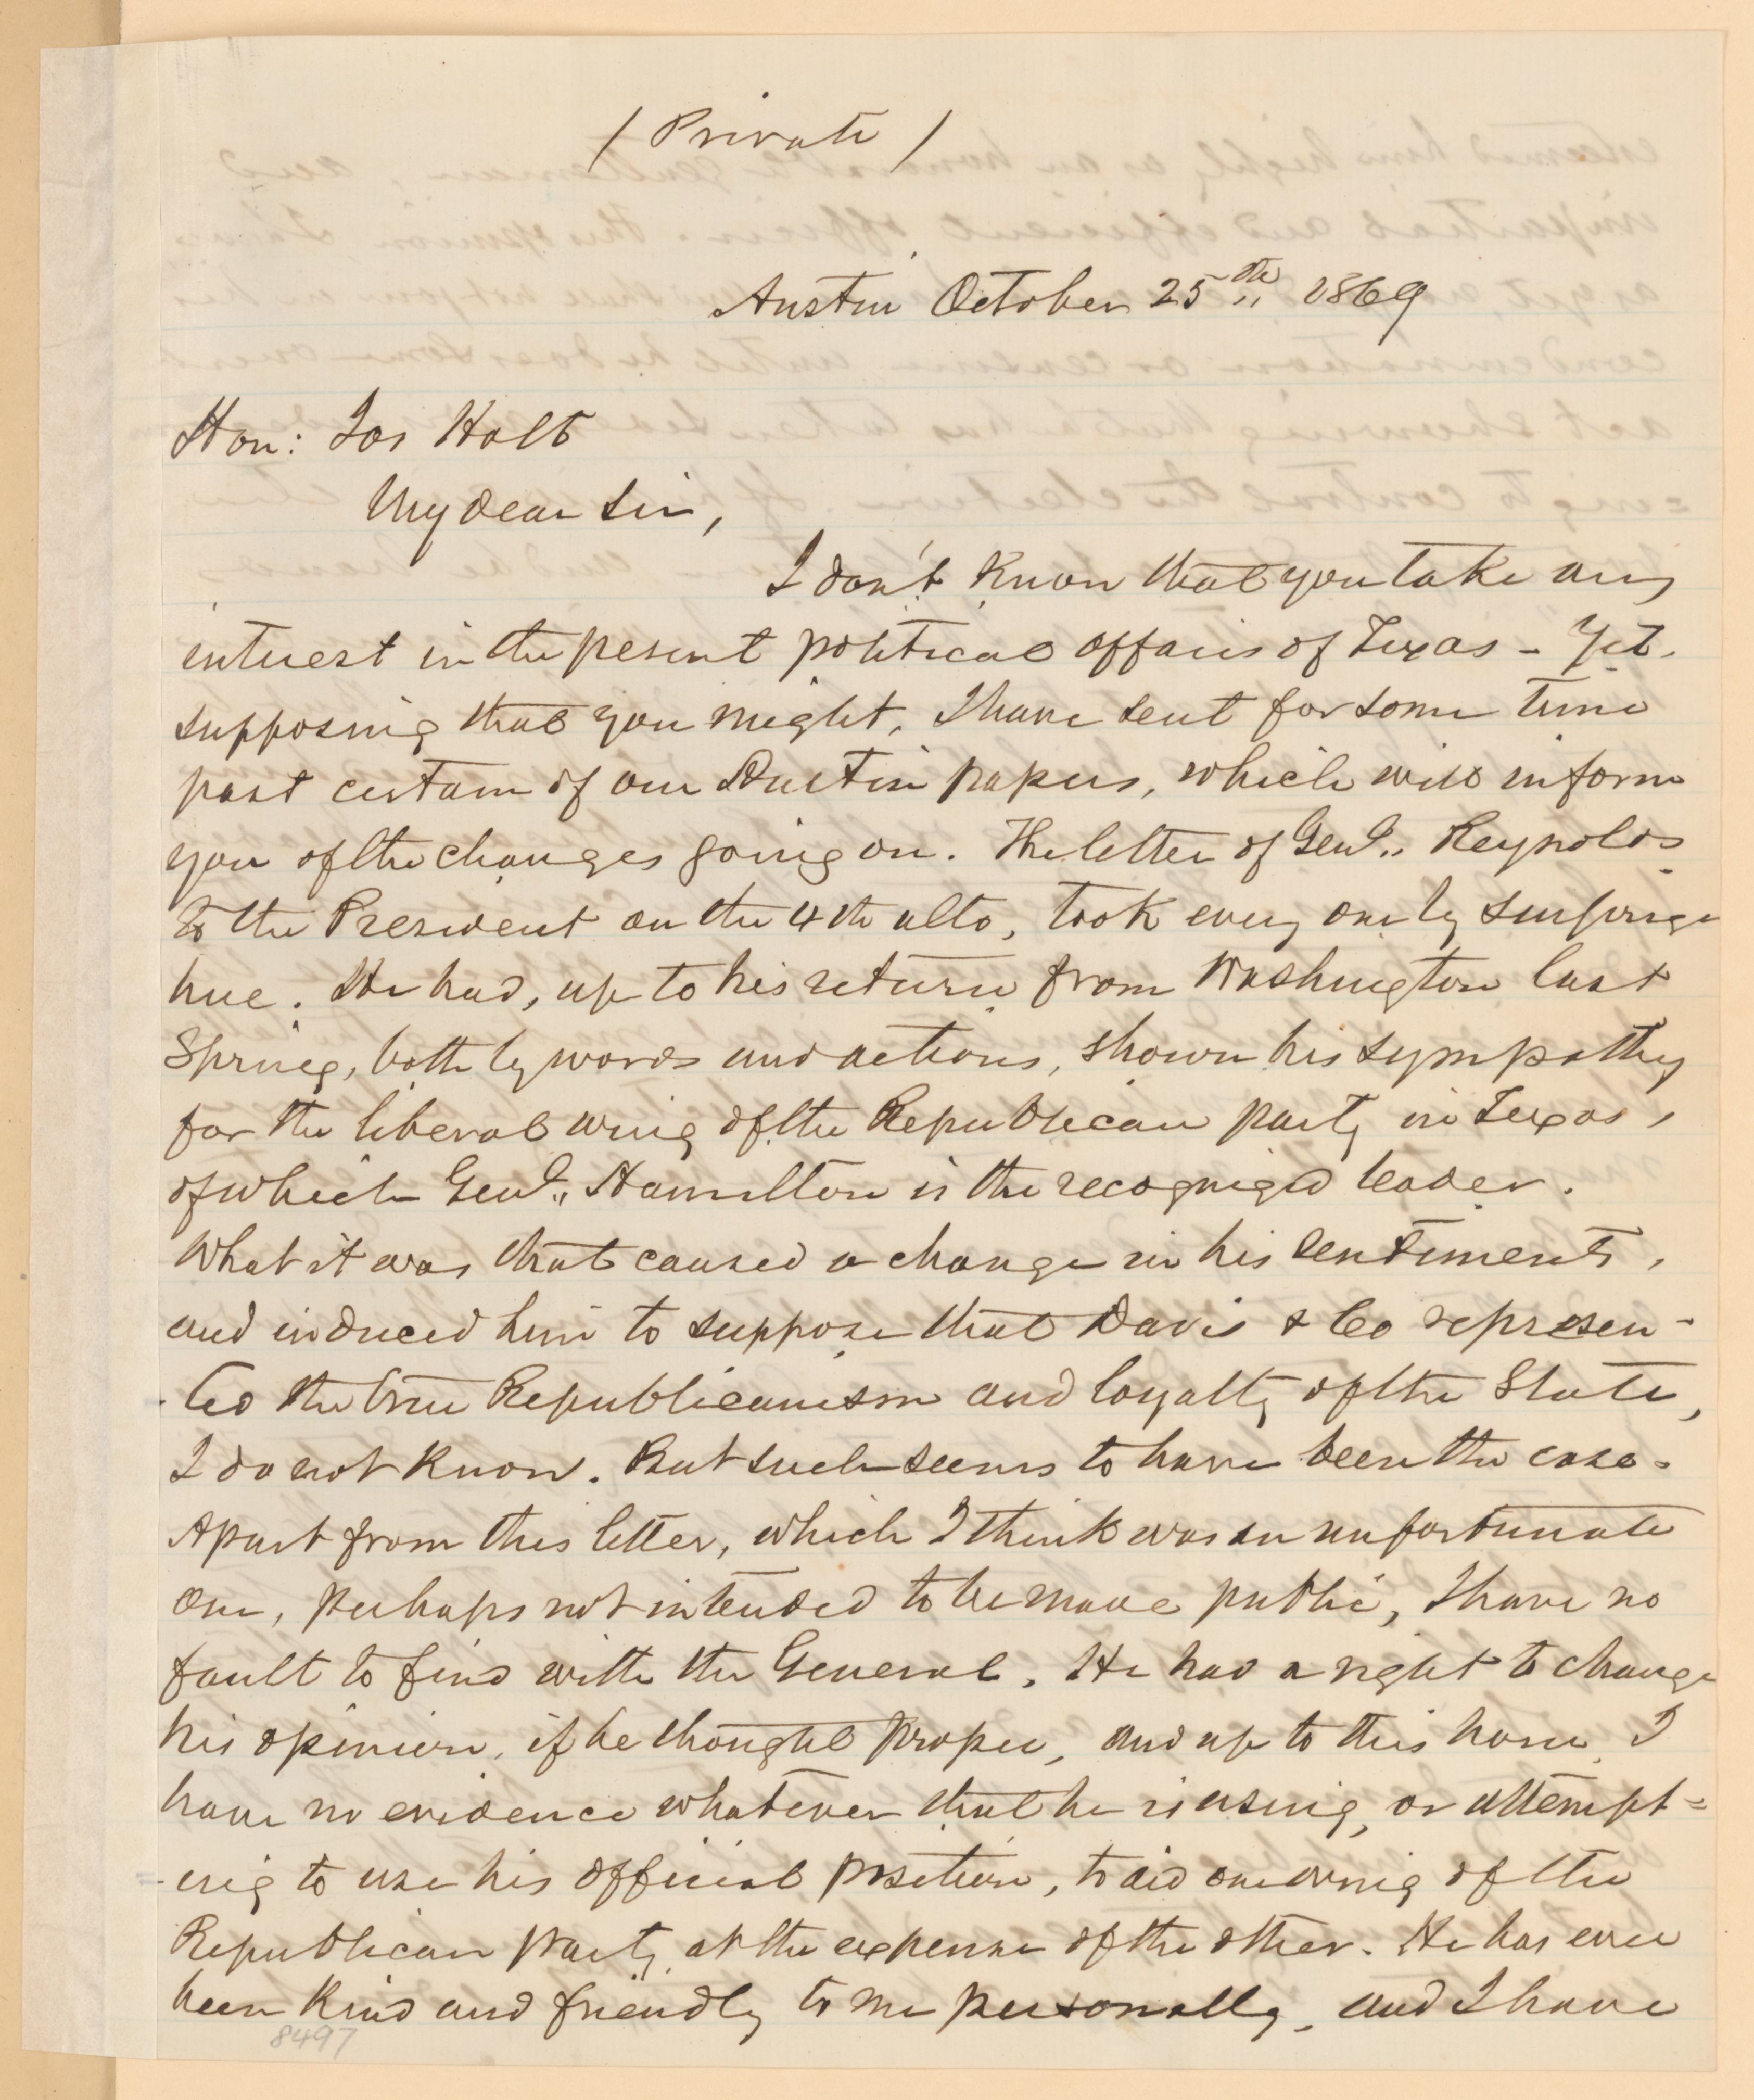 ( Private )
Austin October 25th 1869
Hon: Jos Holt
My dear Sir,
I don't know that you take any
interest in the present political affairs of Texas - Yet,
supposing that you might, I have sent for some time
past certain of our Austin papers, which will inform
you of the changes going on. The letter of Genl. Reynolds
to the President on the 4th ulto, took every one by surprise
here. He had, up to his return from Washington last
Spring, both by words and actions, shown his sympathy
for the liberal wing of the Republican party in Texas,
of which Genl. Hamilton is the recognized leader.
What it was that caused a change in his sentiments,
and induced him to suppose that Davis & Co represen-
-ted the true Republicanism and loyalty of the State,
I do not know. But such seems to have been the case.
Apart from this letter, which I think was an unfortunate
one, perhaps not intended to be made public, I have no
fault to find with the General. He had a right to change
his opinion, if he thought proper, and up to this hour, I
have no evidence whatever that he is using, or attempt=
-ing to use his official position, to aid one wing of the
Republican party, at the expense of the other. He has ever
been kind and friendly to me personally, and I have
8497